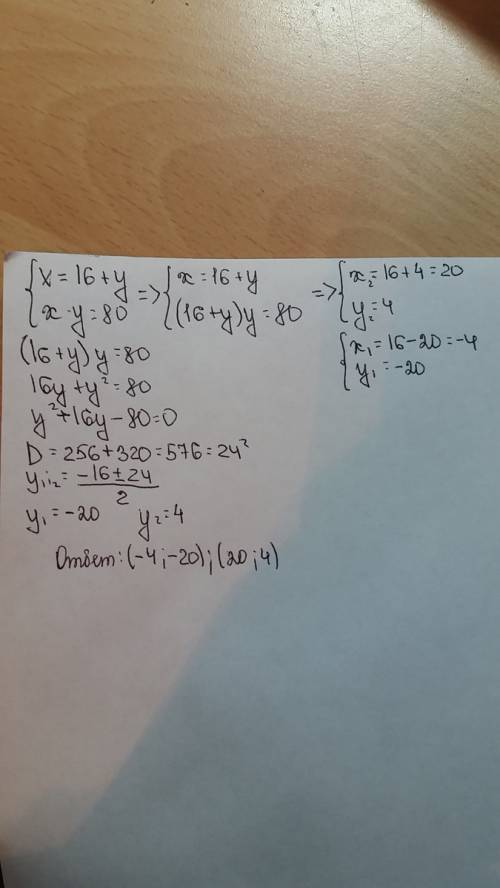 {x = 16 + y
x · y = 80
=> {x = 16 + y
(16 + y)y = 80
=> {x₂ = 16 + 4 = 20
y₂ = 4
{x₁ = 16 - 20 = -4
y₁ = -20
(16 + y) y = 80
16y + y² = 80
y² + 16y - 80 = 0
D = 256 + 320 = 576 = 24²
y₁;₂ = (-16 ± 24)/2
y₁ = -20 y₂ = 4
Ответ: (-4; -20); (20; 4)